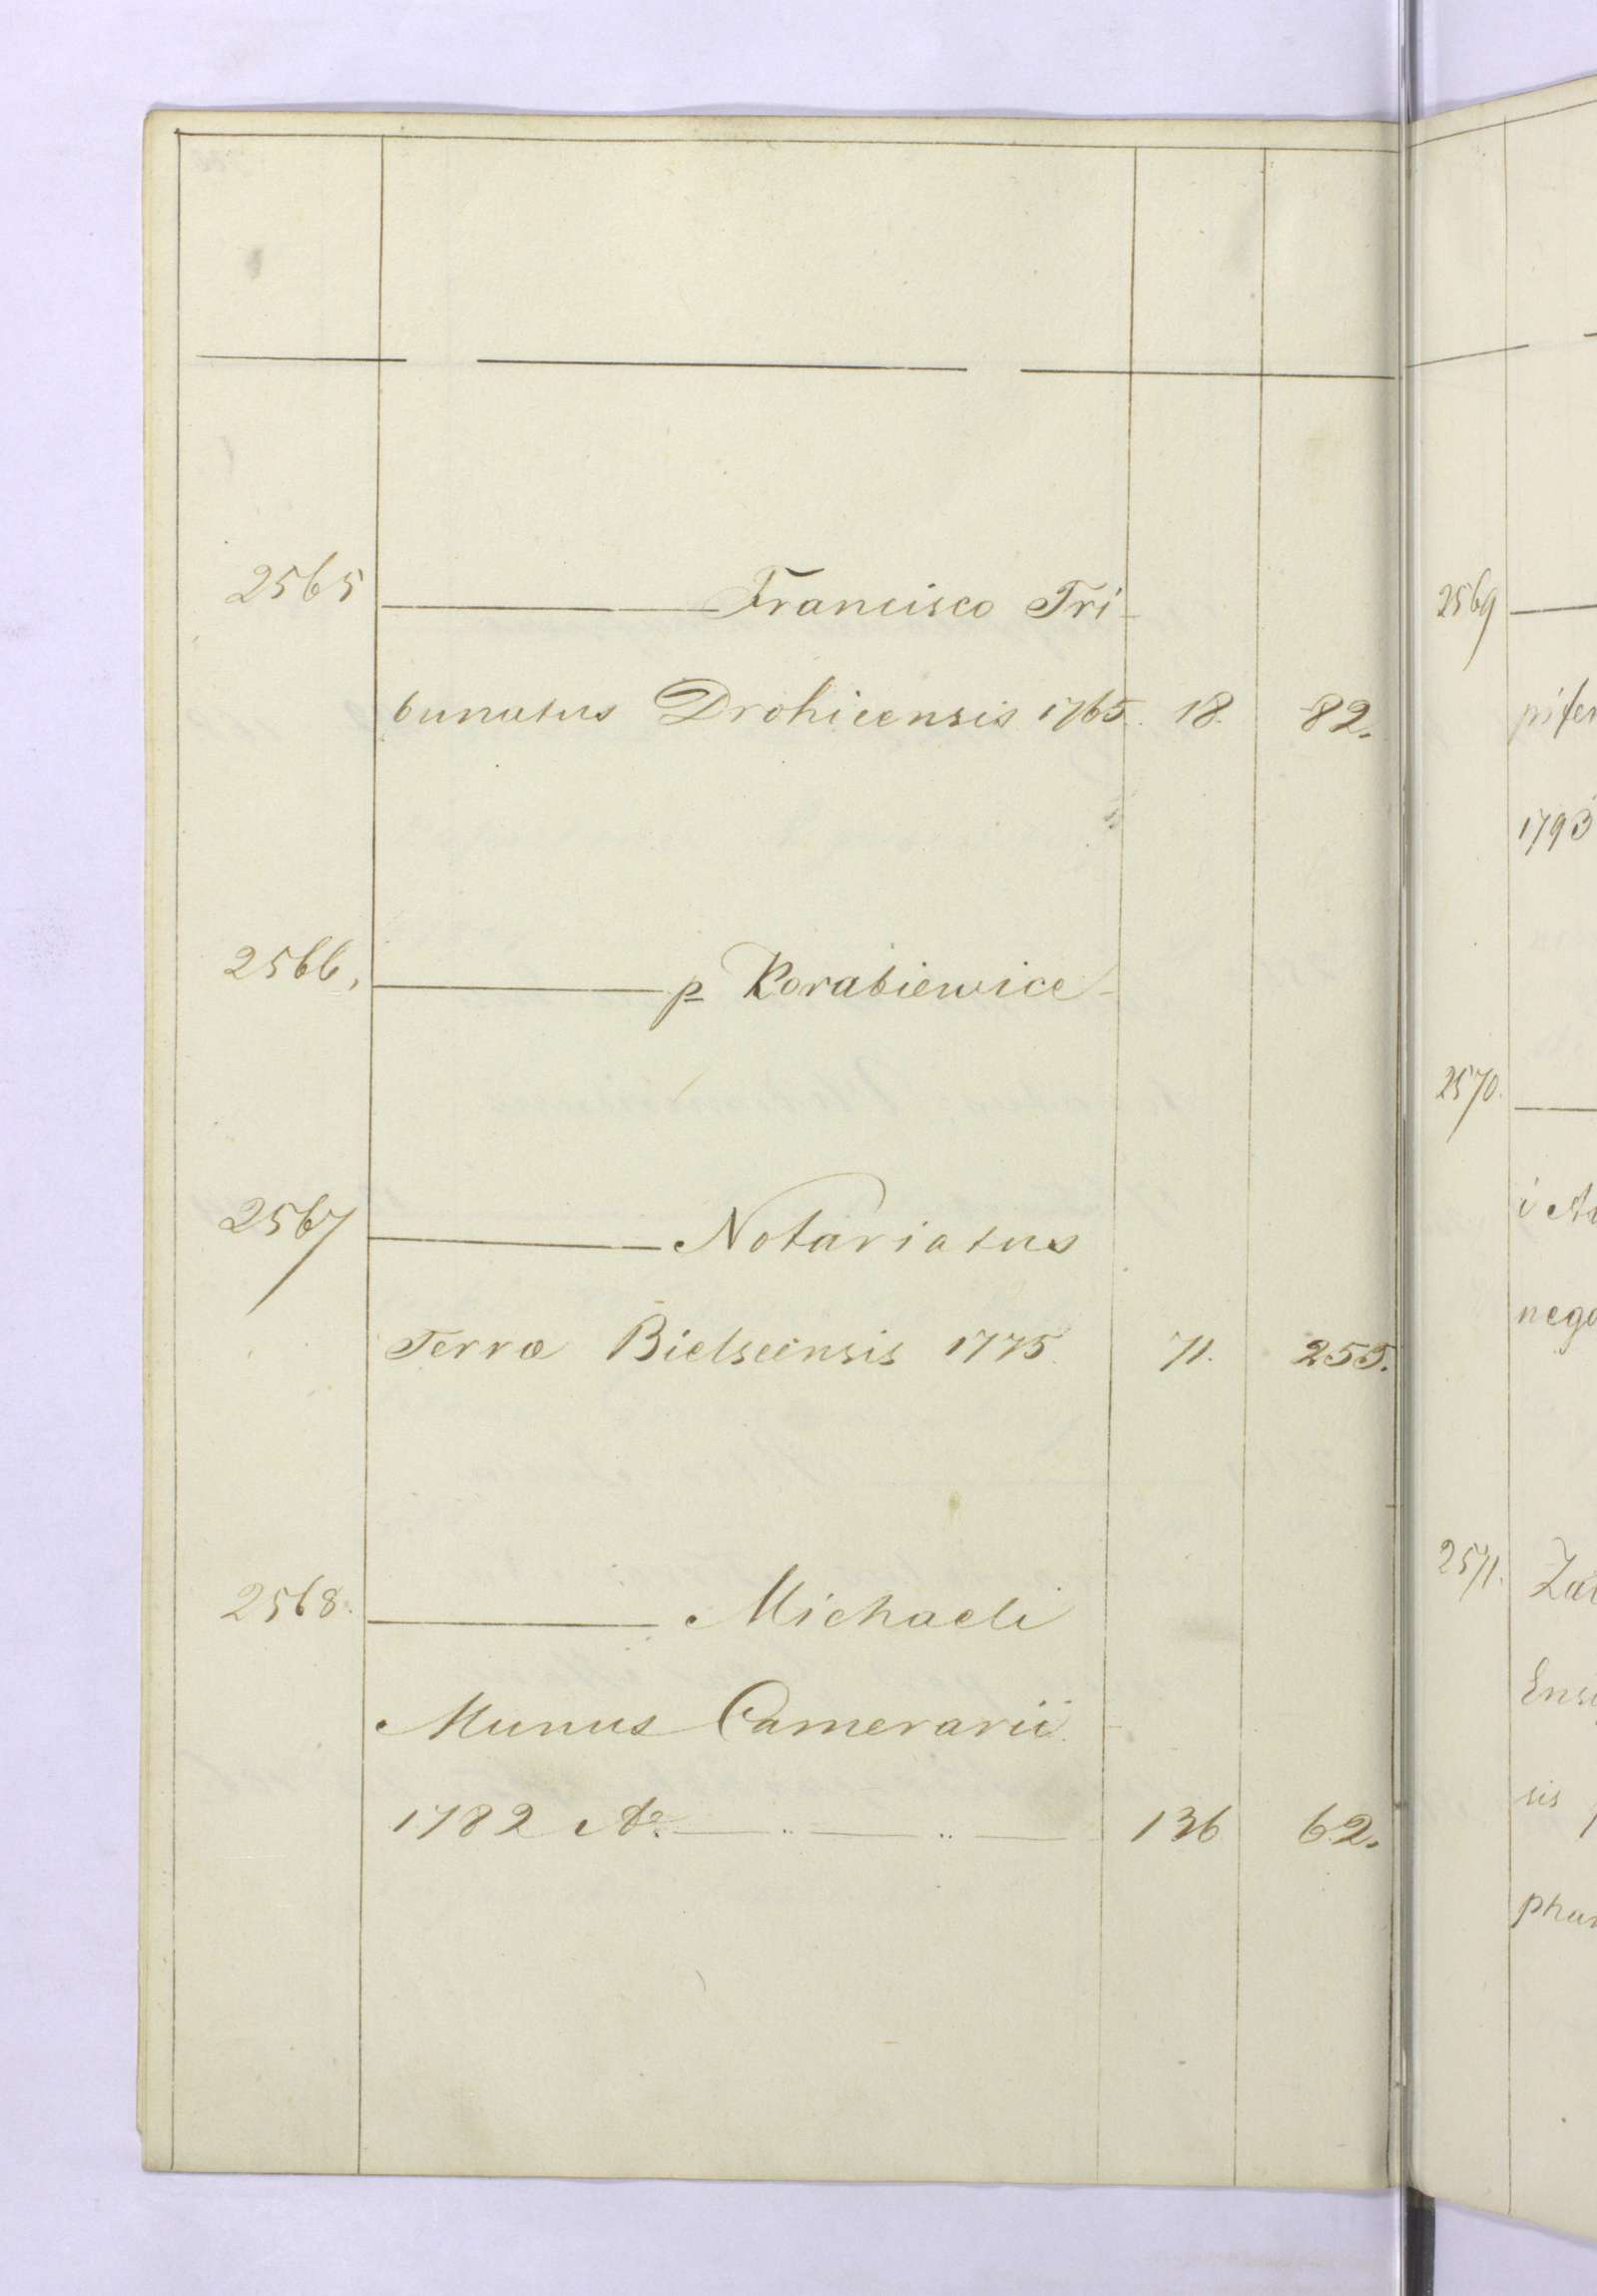 2565 ——— Francisco Tri-
bunatus Drohicensis 1765. 18. 82.
2566, ——— p Korabiewice
2567 ——— Notariatus
Terræ Bielscensis 1775. 71. 255.
2568. ——— Michaeli
Munus Camerarii
1782 Ao. — .. — .. — 136 62.
2569 —
1793
2570. —
2571.
sis